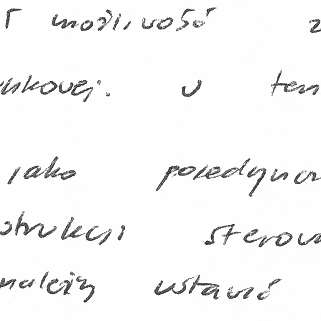 możliwość
w ten
jako pojedyn
strukcji sterow
należy wstawić